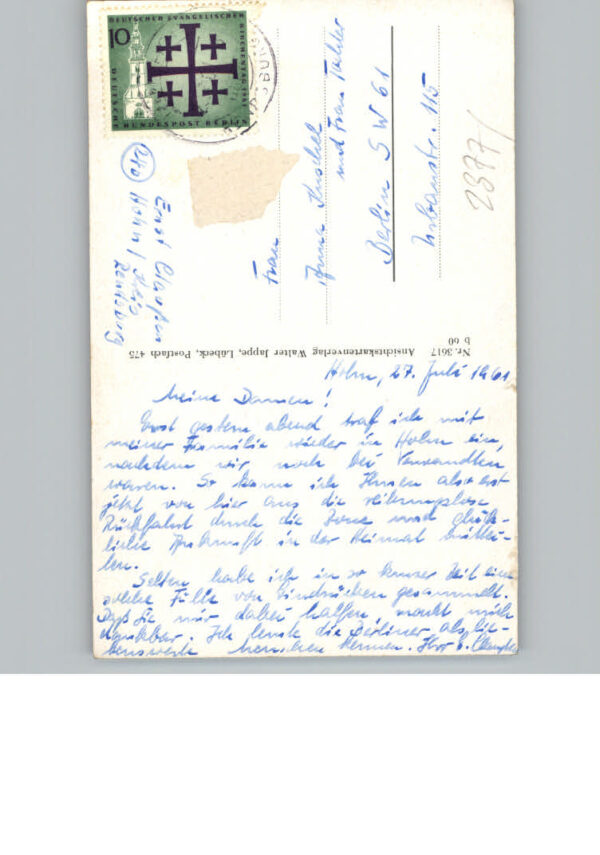 DEUTSCHER EVANGELISCHER
KIRCHENTAG 1961
10
DEUTSCHE
BUNDESPOST BERLIN
Frau
Anna Kuschel
und Frau
Berlin SW 61
Urbanstr. 115
2877/
Ernst
Holm /
Nr. 3617 Ansichtskartenverlag Walter Jappe, Lübeck, Postfach 475
b 60
Holm, 27. Juli 1961
Meine Damen!
Erst gestern abend traf ich mit
meiner Familie wieder in Holm ein,
nachdem wir noch bei Verwandten
waren. So kann ich Ihnen also erst
jetzt von hier aus die reibungslose
Rückfahrt durch die Zone und glück-
liche Ankunft in der Heimat mittei-
len.
Selten habe ich in so kurzer Zeit eine
solche Fülle von Eindrücken gesammelt.
Daß Sie mir dabei halfen, macht mich
dankbar. Ich lernte die Berliner als lie-
benswerte Menschen kennen. Ihr E.